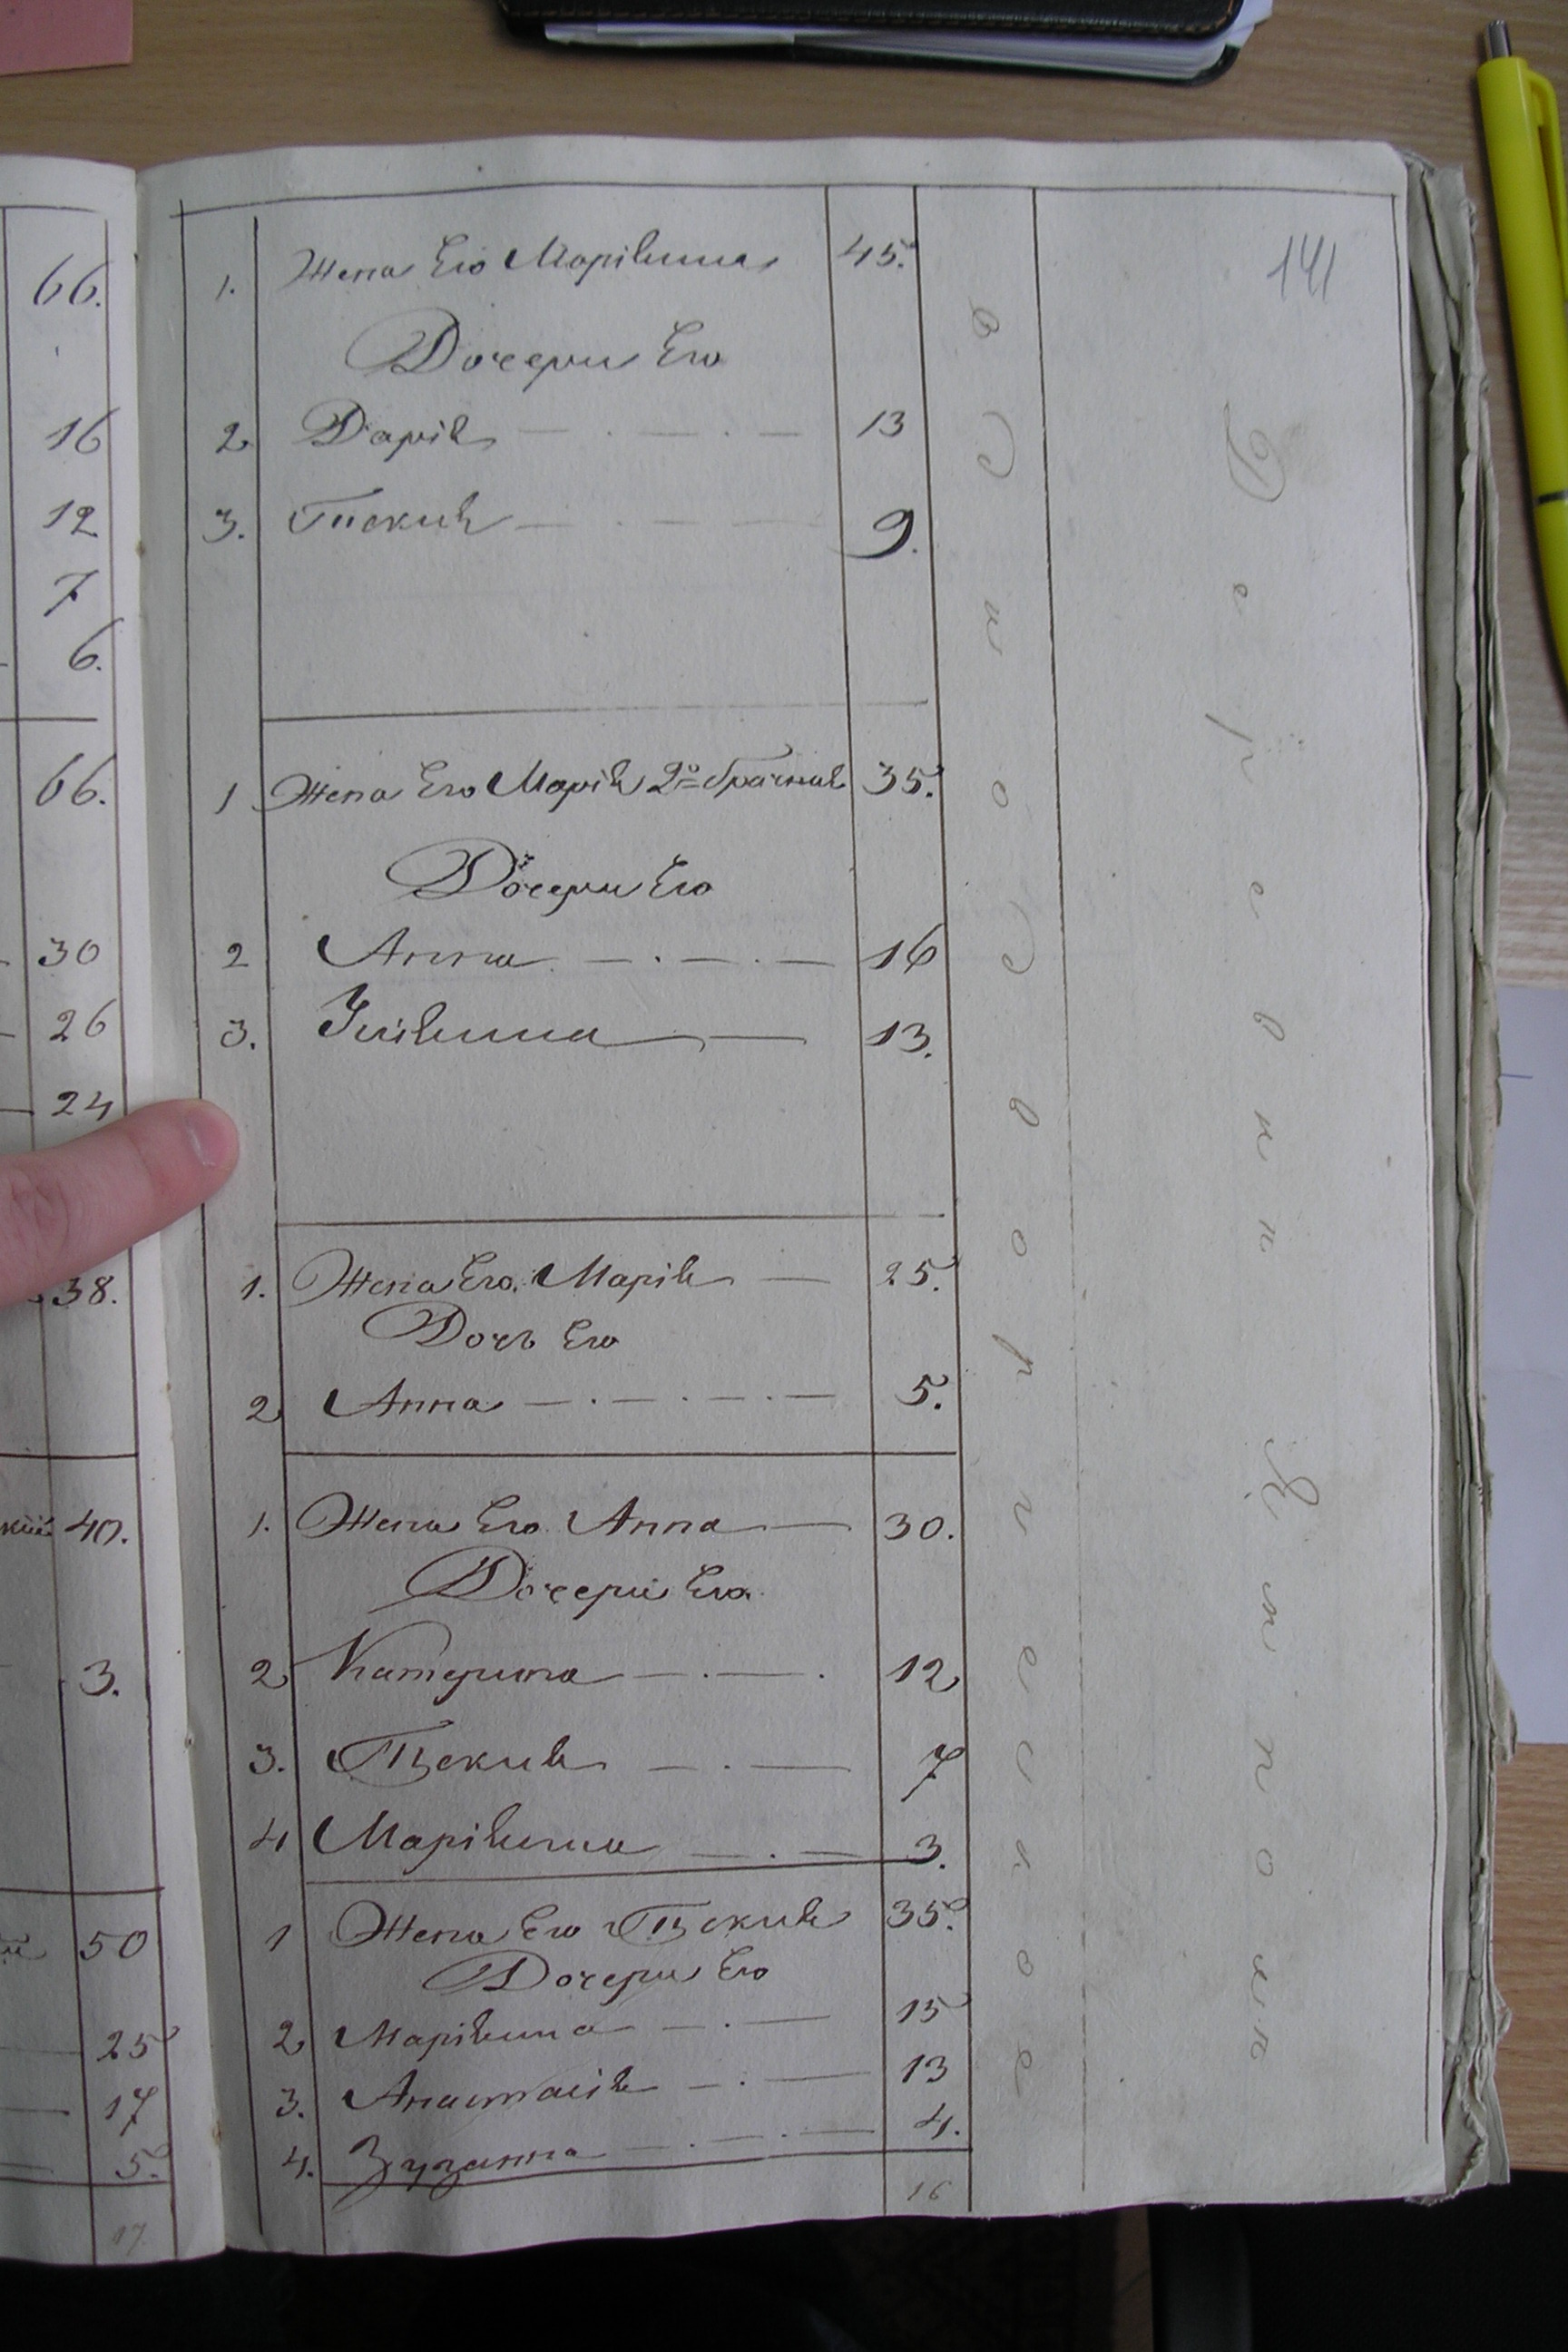 66.
16
12
7
6.
66.
30
26
24
38.
40.
3.
50
25
17
5.
17
141
1. Жена Его Маріянна 45.
Дочери Его
2 Дарія 13
3. Текля 9.
1 Жена Его Марія 2о брачная 35.
Дочери Его
2 Анна 16
3. Юліянна 13.
1. Жена Его Марія 25.
Дочь Его
2 Анна 5.
1. Жена Его Анна 30.
Дочери Его
2 Катерина 12
3. Текля 7
4 Маріянна 3.
1 Жена Его Текля 35.
Дочери Его
2 Маріянна 15
3. Анастасія 13
4. Зузанна 4.
16